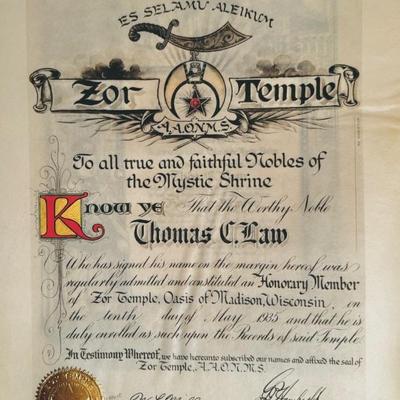 ES SELAMU ALEIKUM
Zor Temple
A.A.O.N.M.S.
To all true and faithful Nobles of
the Mystic Shrine
Know ye That the Worthy Noble
Thomas C. Law
Who has signed his name on the margin hereof was
regularly admitted and constituted an Honorary Member
of Zor Temple, Oasis of Madison, Wisconsin, on
the tenth day of May 1935 and that he is
duly enrolled as such upon the Records of said Temple.
In Testimony Whereof, we have hereunto subscribed our names and affixed the seal of
Zor Temple, A.A.O.N.M.S.